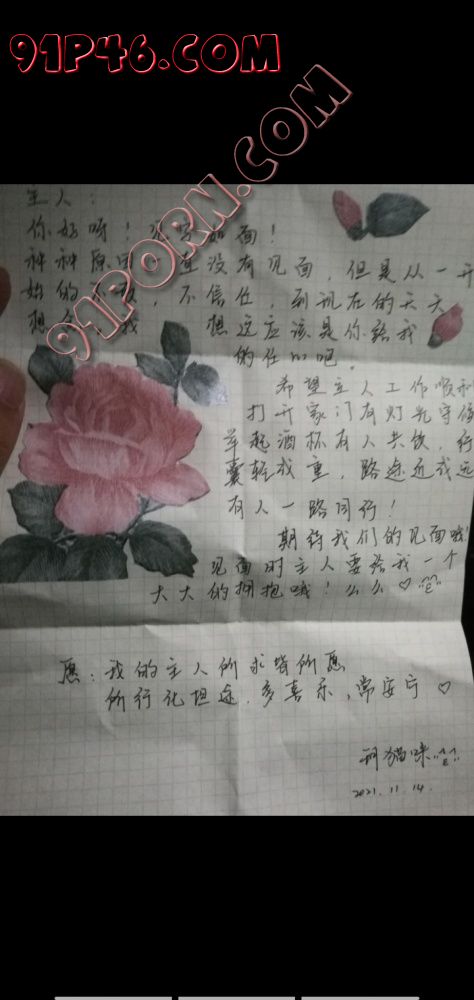 91P46.COM
91PORN.COM
主人：
你好呀！ 如面！
种种原因 直没有见面，但是从一开
始的 ，不信任，到现在的天天
想 我 想这应该是你给我
的信心吧。
希望主人工作顺利
打开家门有灯光守候
举起酒杯有人共饮，行
囊轻或重，路途近或远
有人一路同行！
期待我们的见面哦！
见面时主人要给我一个
大大的拥抱哦！么么♡
愿：我的主人所求皆所愿
所行化坦途，多喜乐，常安宁♡
猫咪
2021.11.14.